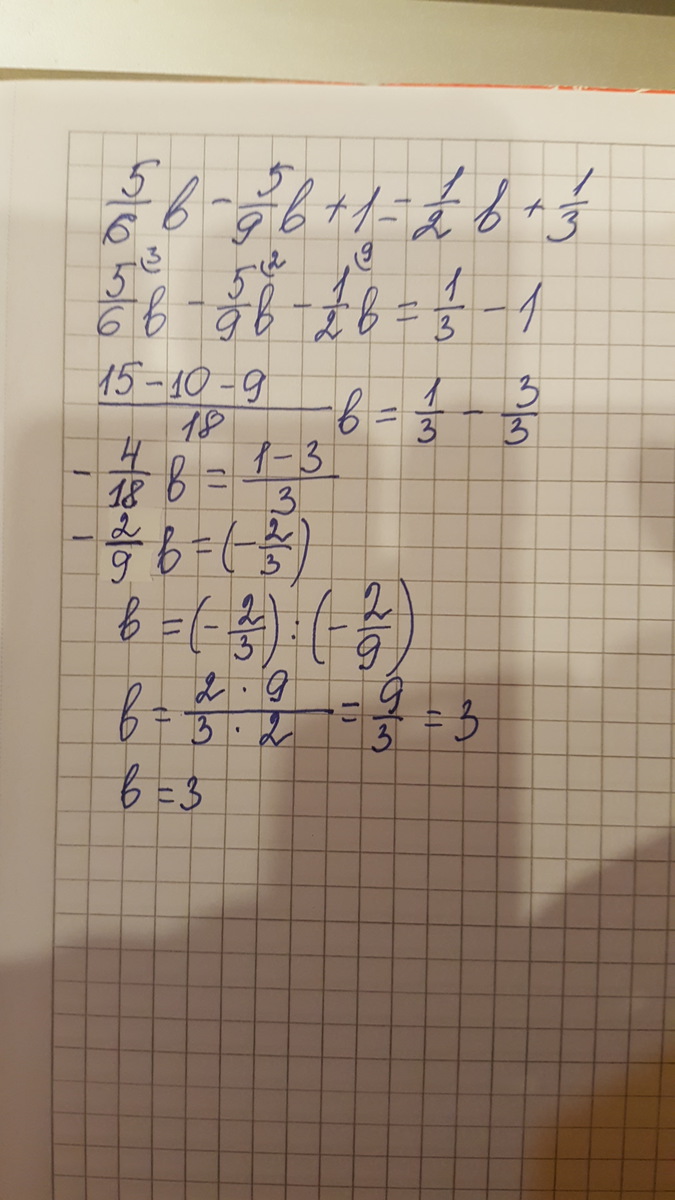 5/6 в - 5/9 в + 1 = 1/2 в + 1/3
5/6 (3 в - 5/9 (2 в - 1/2 (9 в = 1/3 - 1
(15 - 10 - 9)/18 в = 1/3 - 3/3
- 4/18 в = (1 - 3)/3
- 2/9 в = (- 2/3)
в = (- 2/3) : (- 2/9)
в = (2 · 9)/(3 · 2) = 9/3 = 3
в = 3